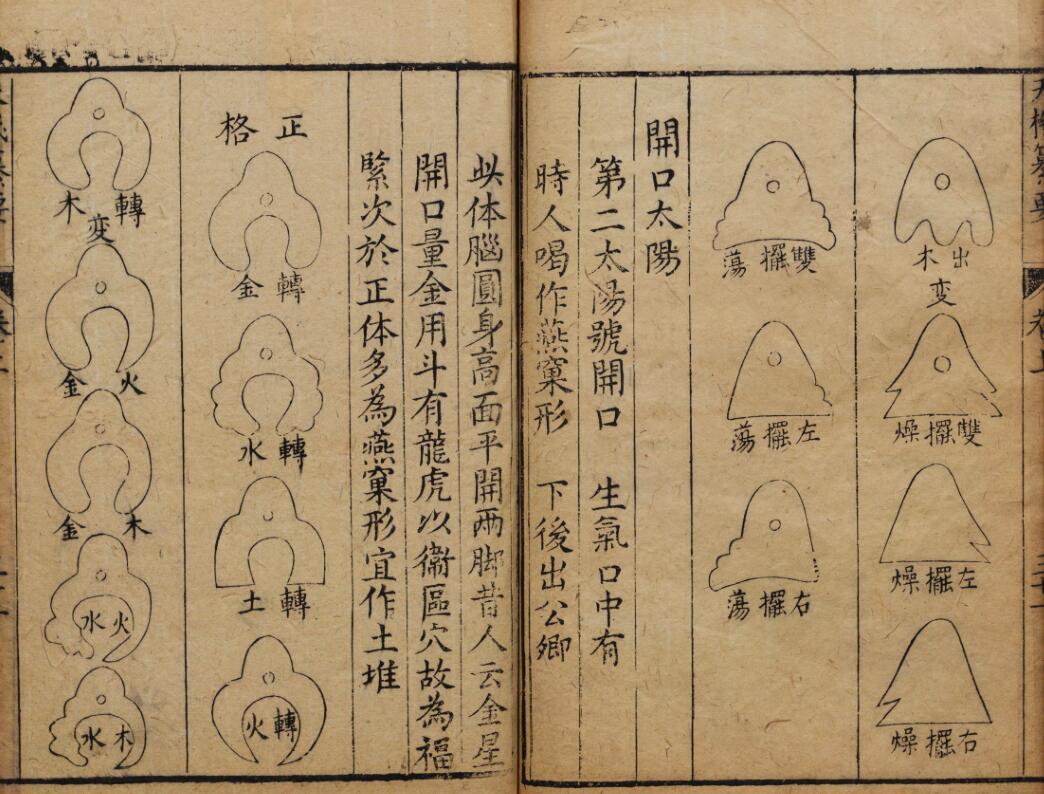 天機纂要
卷上
出木
変
雙擺燥
左擺燥
右擺燥
雙擺蕩
左擺蕩
右擺蕩
開口太陽
第二太陽號開口　生氣口中有
時人喝作燕窠形　下後出公卿
此体腦圓身高面平開兩脚昔人云金星
開口量金用斗有龍虎以衛區穴故為福
緊次於正体多為燕窠形宜作土堆
正格
轉金
轉水
轉土
轉火
轉木
変
火金
木金
火水
木水